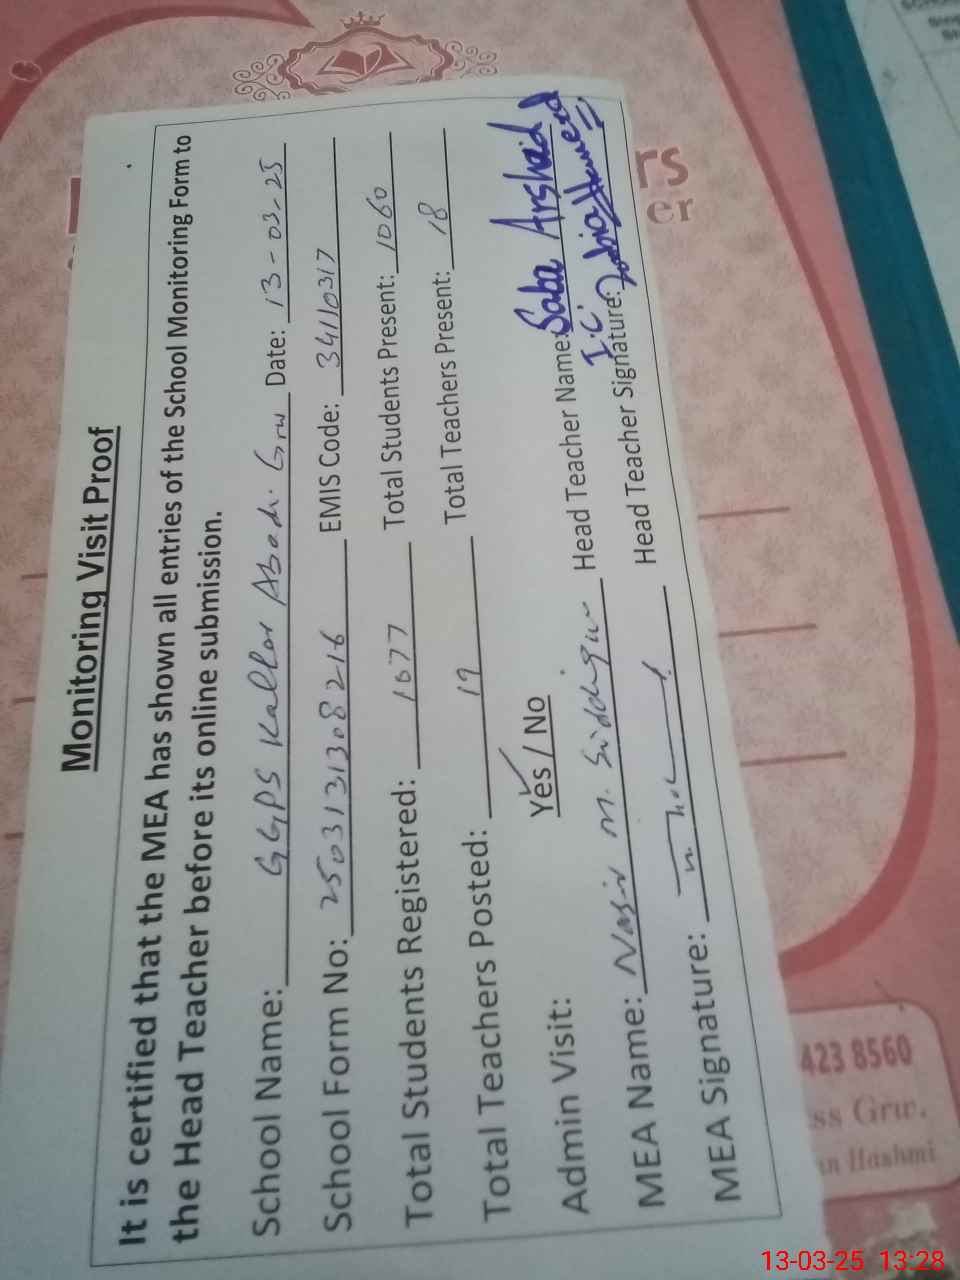 Monitoring Visit Proof
It is certified that the MEA has shown all entries of the School Monitoring Form to
the Head Teacher before its online submission.
School Name: GGPS Kallar Abadi Grw Date: 13-03-25
School Form No: 2503131308216 EMIS Code: 34110317
Total Students Registered: 1577 Total Students Present: 1060
Total Teachers Posted: 19 Total Teachers Present: 18
Admin Visit: Yes / No
MEA Name: M. Head Teacher Name: Saba Arshad
I.C.
MEA Signature: Head Teacher Signature:
rs
er
423 8560
ss Grw.
Hashmi
13-03-25 13:28